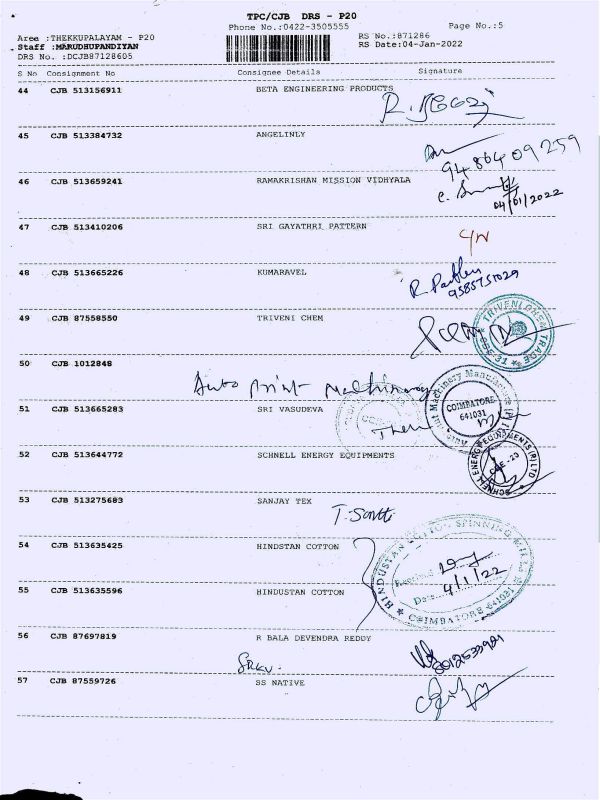 TPC/CJB DRS - P20
Phone No.:0422-3505555
Page No.:5
Area :THEKKUPALAYAM - P20
RS No.:871286
Staff :MARUDHUPANDIYAN
RS Date:04-Jan-2022
DRS No. :DCJB87128605
S No Consignment No Consignee Details Signature
44 CJB 513156911 BETA ENGINEERING PRODUCTS
45 CJB 513384732 ANGELINLY
9486409259
46 CJB 513659241 RAMAKRISHAN MISSION VIDHYALA
04/01/2022
47 CJB 513410206 SRI GAYATHRI PATTERN
48 CJB 513665226 KUMARAVEL
9585751029
49 CJB 87558550 TRIVENI CHEM
50 CJB 1012848
Auto Print Machinery
COIMBATORE
641031
51 CJB 513665283 SRI VASUDEVA
52 CJB 513644772 SCHNELL ENERGY EQUIPMENTS
SCHNELL ENERGY EQUIPMENTS (P) LTD
CBE-20
53 CJB 513275683 SANJAY TEX
54 CJB 513635425 HINDSTAN COTTON
HINDUSTAN COTTON SPINNING MILLS
Received
Date 4/1/22
COIMBATORE 641031
55 CJB 513635596 HINDUSTAN COTTON
56 CJB 87697819 R BALA DEVENDRA REDDY
SRKV.
57 CJB 87559726 SS NATIVE